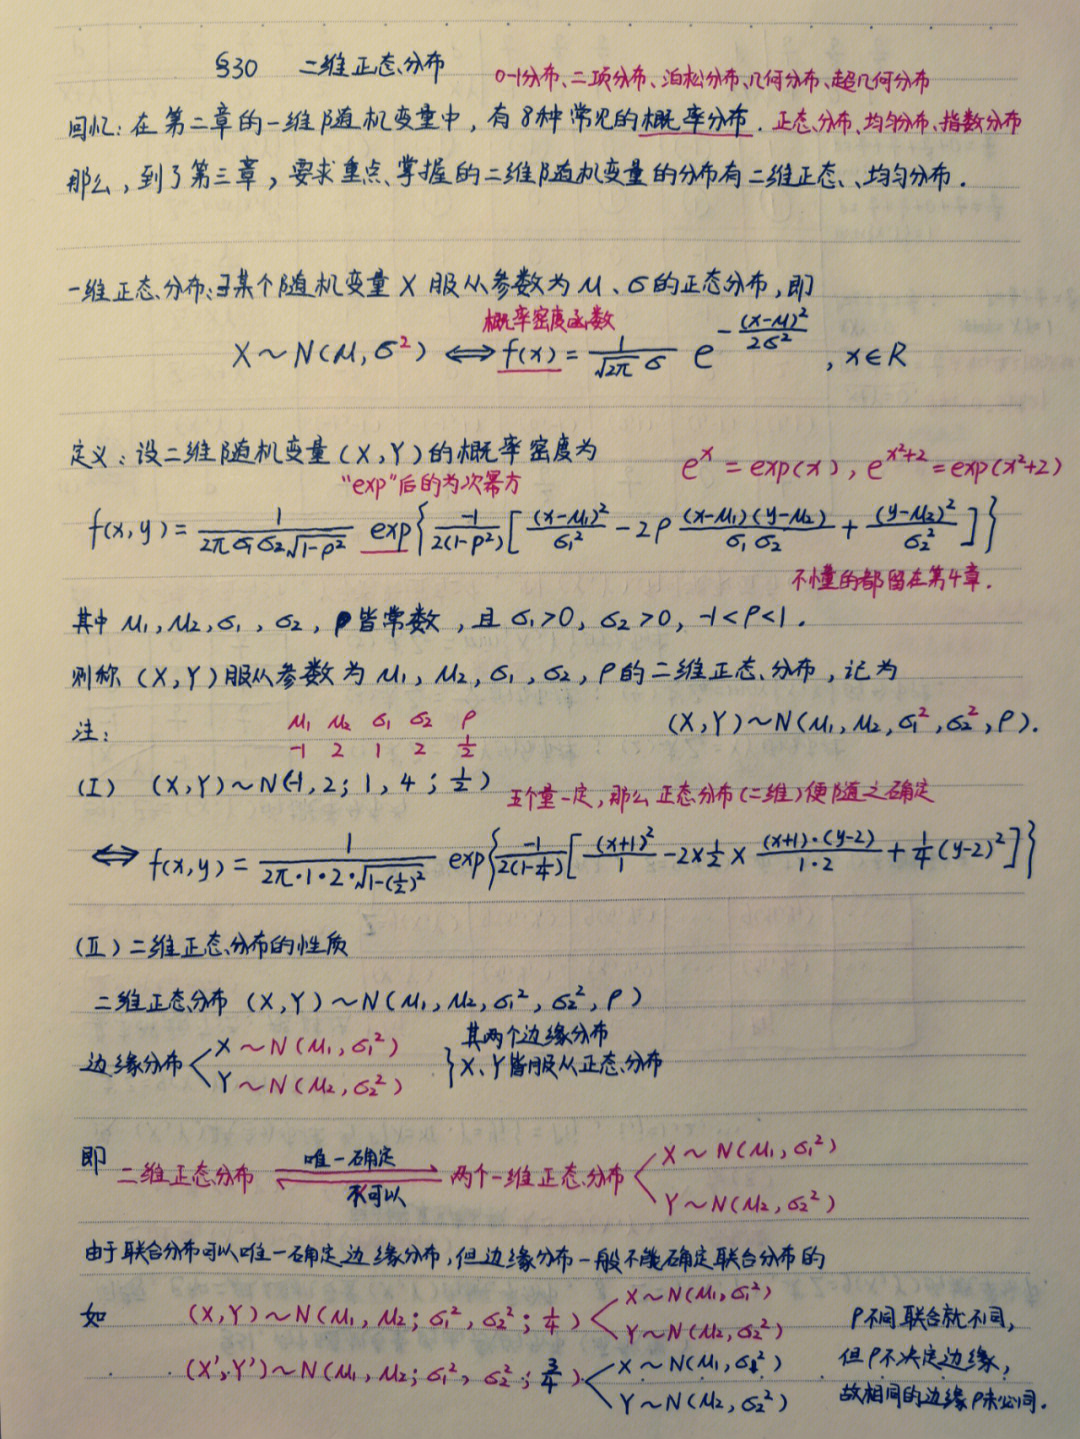 §30 二维正态分布
0-1分布、二项分布、泊松分布、几何分布、超几何分布
回忆：在第二章的一维随机变量中，有8种常见的概率分布. 正态分布、均匀分布、指数分布
那么，到了第三章，要求重点掌握的二维随机变量的分布有二维正态、均匀分布.
一维正态分布:∃某个随机变量X服从参数为μ、σ的正态分布,即
概率密度函数
X~N(μ,σ²) ⟺ f(x) = 1/(√2π σ) e^(-(x-μ)²/2σ²) , x∈R
定义：设二维随机变量(X,Y)的概率密度为
e^x = exp(x), e^(x²+2) = exp(x²+2)
"exp"后的为次幂方
f(x,y) = 1/(2πσ₁σ₂√(1-ρ²)) exp{ -1/(2(1-ρ²)) [ (x-μ₁)²/σ₁² - 2ρ (x-μ₁)(y-μ₂)/(σ₁σ₂) + (y-μ₂)²/σ₂² ] }
不懂的都留在第4章.
其中 μ₁,μ₂,σ₁,σ₂,ρ皆常数，且σ₁>0, σ₂>0, -1<ρ<1.
则称(X,Y)服从参数为μ₁,μ₂,σ₁,σ₂,ρ的二维正态分布，记为
(X,Y)~N(μ₁,μ₂,σ₁²,σ₂²,ρ).
注:
μ₁ μ₂ σ₁ σ₂ ρ
-1 2 1 2 1/2
(I) (X,Y)~N(-1,2; 1,4; 1/2) 五个量一定,那么正态分布(二维)便随之确定
⟺ f(x,y) = 1/(2π·1·2·√(1-(1/2)²)) exp{ -1/(2(1-1/4)) [ (x+1)²/1 - 2×1/2× (x+1)·(y-2)/(1·2) + 1/4(y-2)² ] }
(II)二维正态分布的性质
二维正态分布 (X,Y)~N(μ₁,μ₂,σ₁²,σ₂²,ρ)
边缘分布 < X~N(μ₁,σ₁²) Y~N(μ₂,σ₂²) } 其两个边缘分布
X、Y皆服从正态分布
即 二维正态分布 唯一确定 不可以 两个一维正态分布 < X~N(μ₁,σ₁²) Y~N(μ₂,σ₂²)
由于联合分布可以唯一确定边缘分布,但边缘分布一般不能确定联合分布的
如 (X,Y)~N(μ₁,μ₂; σ₁²,σ₂²; 1/4) < X~N(μ₁,σ₁²) Y~N(μ₂,σ₂²)
(X',Y')~N(μ₁,μ₂; σ₁²,σ₂²; 3/4) < X~N(μ₁,σ₁²) Y~N(μ₂,σ₂²)
ρ不同联合就不同,
但ρ不决定边缘,
故相同的边缘ρ未必同.